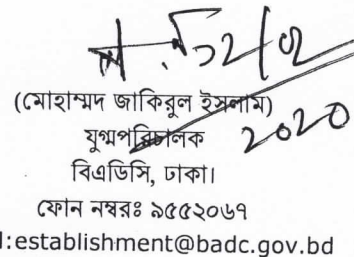 (মোহাম্মদ জাকিরুল ইসলাম)
যুগ্মপরিচালক
2020
বিএডিসি, ঢাকা।
ফোন নম্বরঃ ৯৫৫২০৬৭
l:establishment@badc.gov.bd